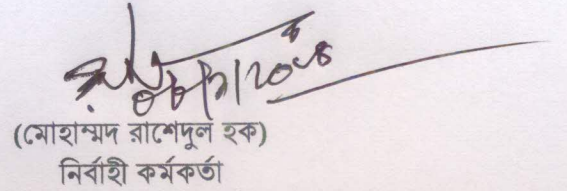 (মোহাম্মদ রাশেদুল হক)
নির্বাহী কর্মকর্তা